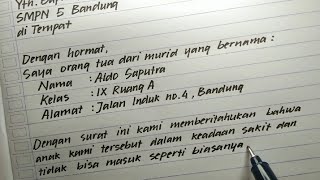 SMPN 5 Bandung
di Tempat
Dengan hormat,
Saya orang tua dari murid yang bernama :
Nama : Aldo Saputra
Kelas : IX Ruang A
Alamat : Jalan Induk no.4, Bandung
Dengan surat ini kami memberitahukan bahwa
anak kami tersebut dalam keadaan sakit dan
tidak bisa masuk seperti biasanya